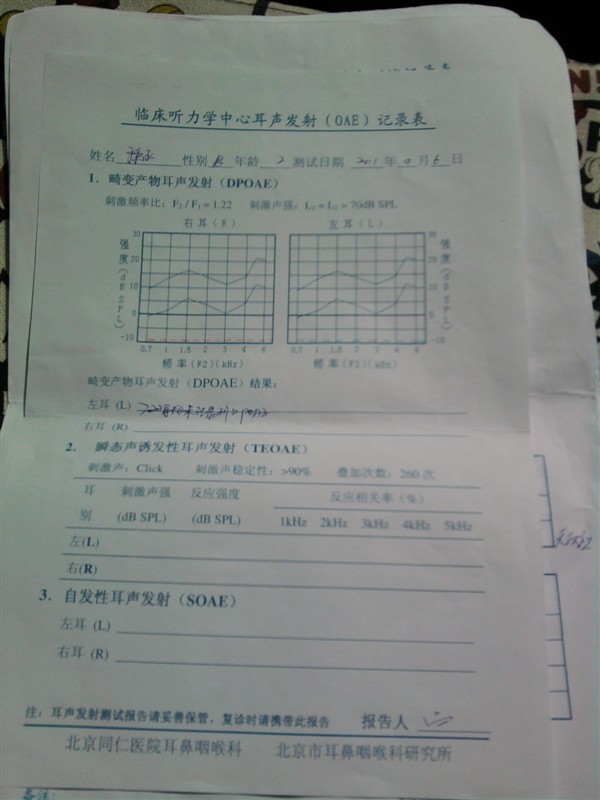 临床听力学中心耳声发射（OAE）记录表
姓名 性别 年龄 2 测试日期 2011 年 月 日
1. 畸变产物耳声发射（DPOAE）
刺激频率比：F₂ / F₁ = 1.22 刺激声强：L₁ = L₂ = 70dB SPL
右耳（R） 左耳（L）
强度(dB SPL) 30 20 10 0 -10
30 20 10 0 -10 强度(dB SPL)
0.7 1 1.5 2 3 4 6 0.7 1 1.5 2 3 4 6
频率(F2)(kHz) 频率(F2)(kHz)
畸变产物耳声发射（DPOAE）结果：
左耳 (L)
右耳 (R)
2. 瞬态声诱发性耳声发射（TEOAE）
刺激声：Click 刺激声稳定性：>90% 叠加次数：260 次
耳 刺激声强 反应强度 反应相关率（%）
别 (dB SPL) (dB SPL) 1kHz 2kHz 3kHz 4kHz 5kHz
左(L)
右(R)
3. 自发性耳声发射（SOAE）
左耳 (L)
右耳 (R)
注：耳声发射测试报告请妥善保管，复诊时请携带此报告 报告人
北京同仁医院耳鼻咽喉科 北京市耳鼻咽喉科研究所
备注：